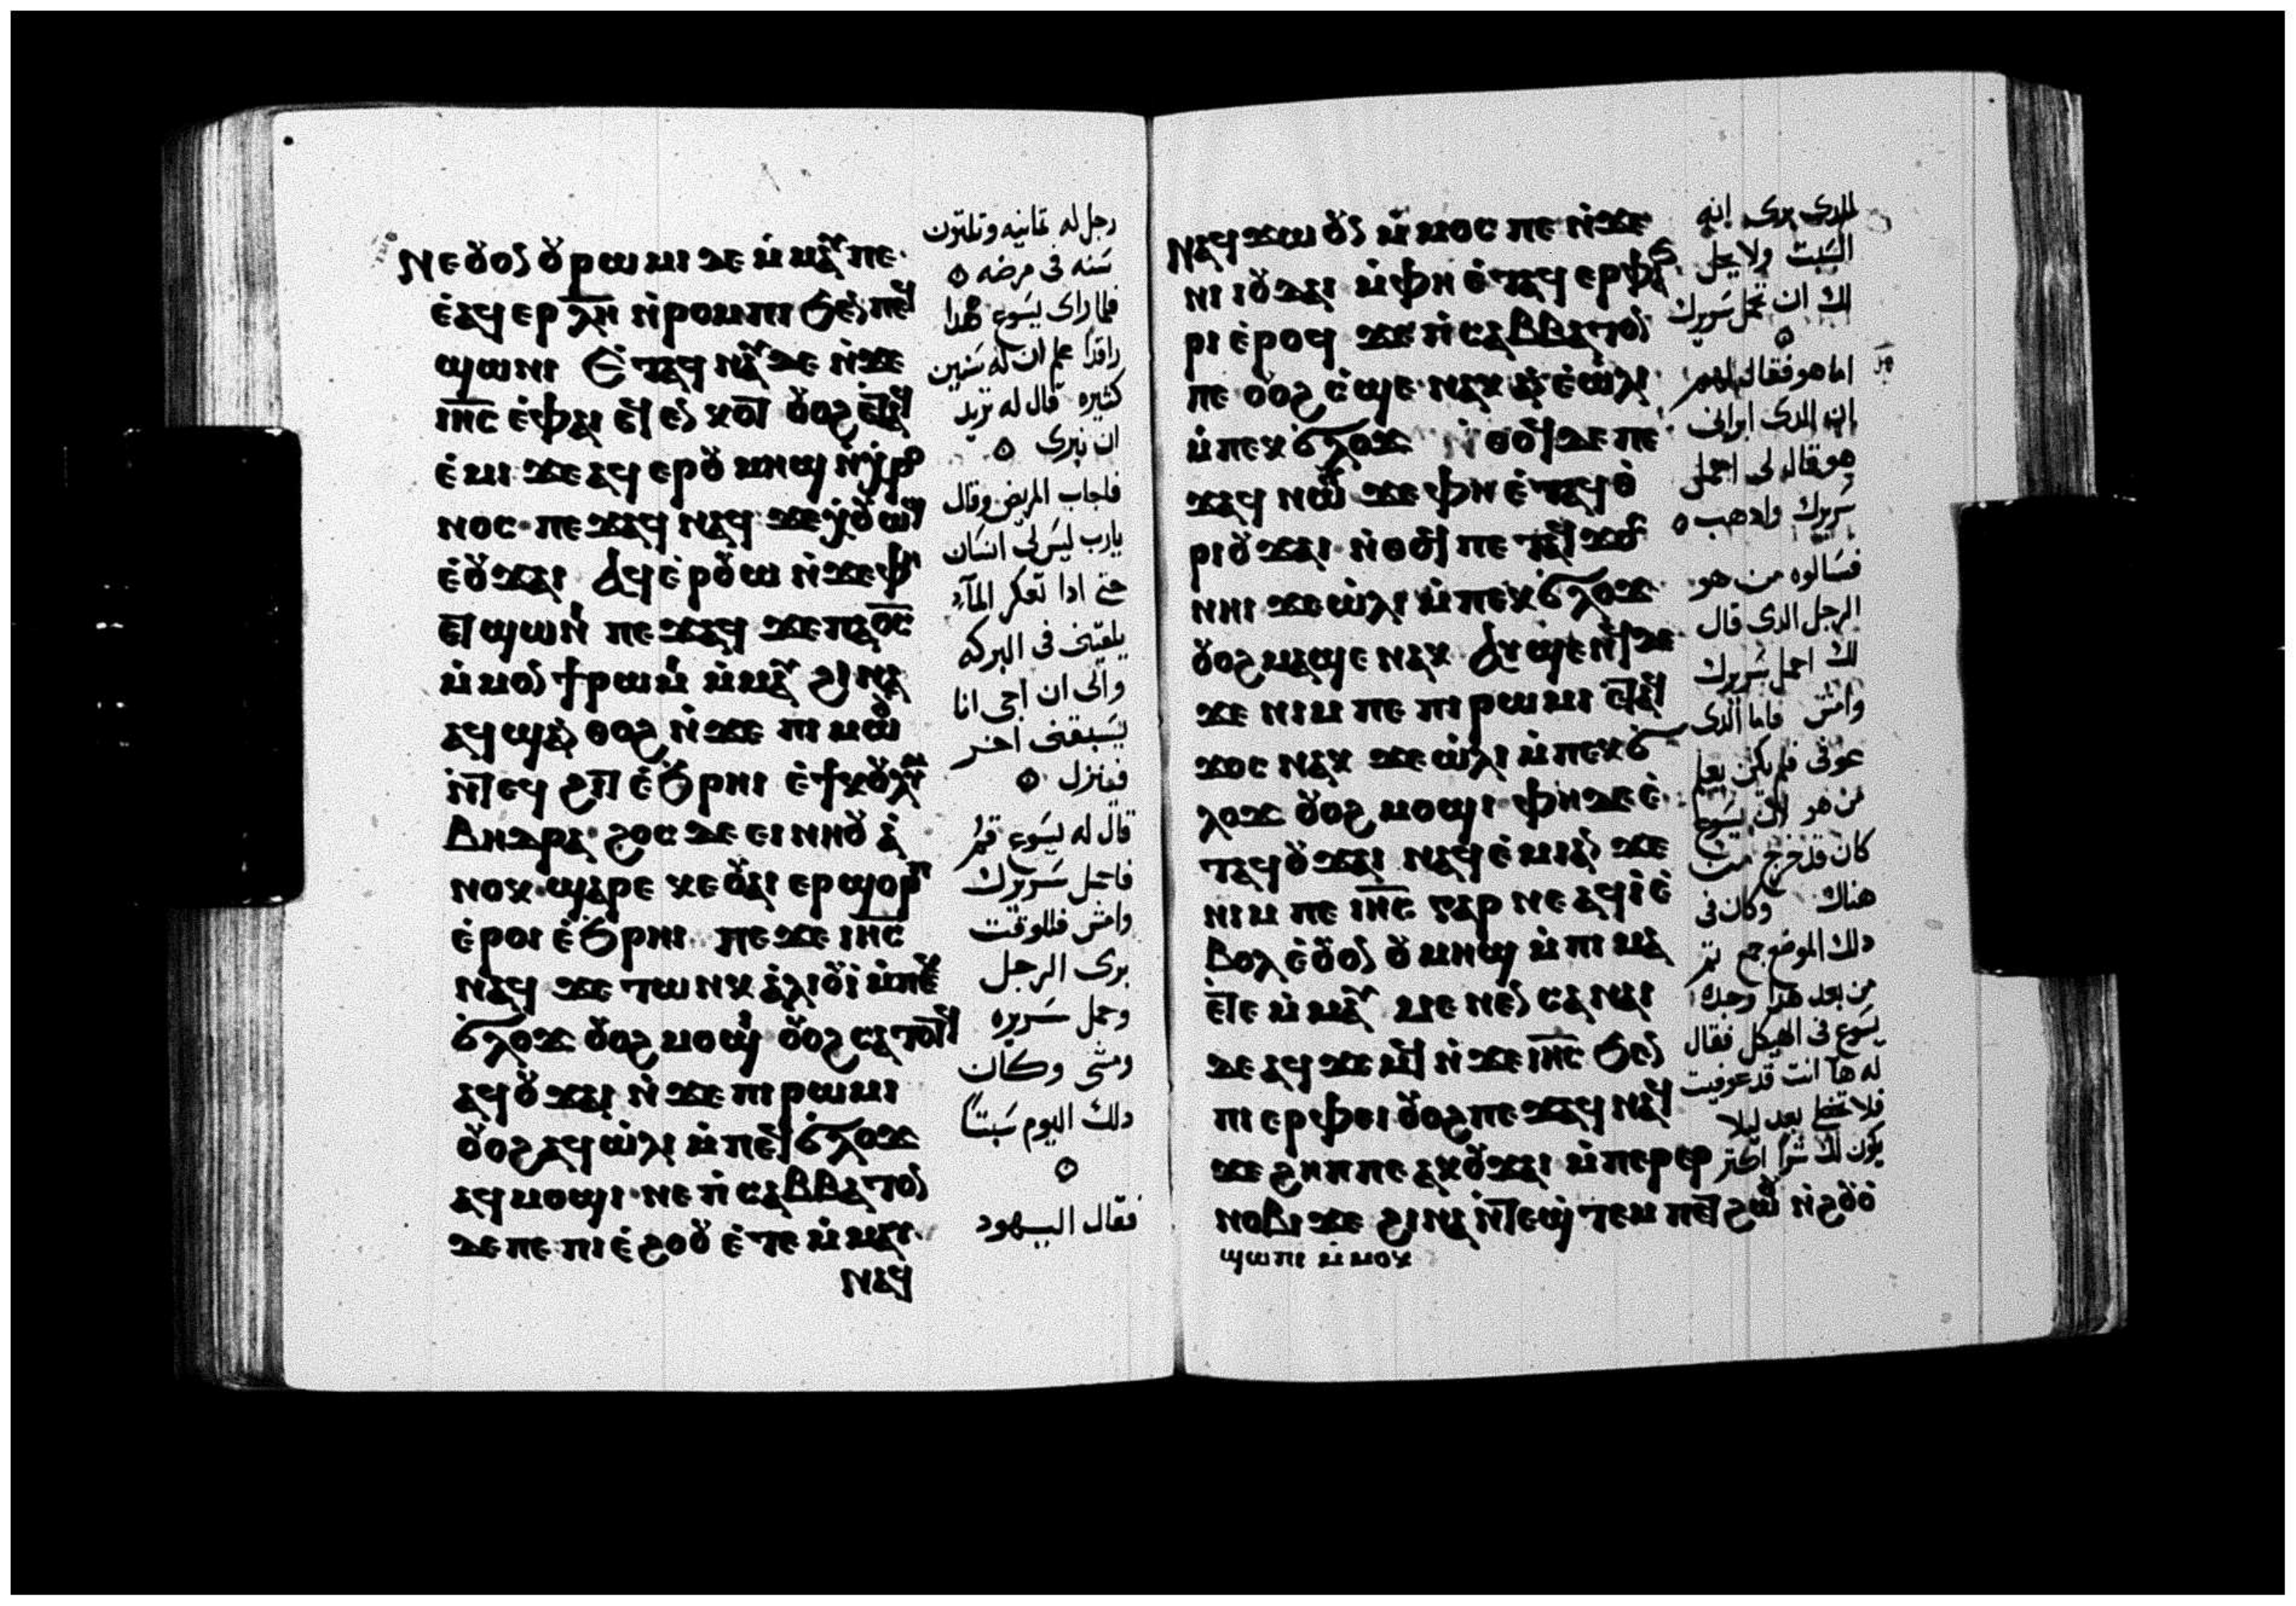 ⲛⲉⲟⲩⲟⲛ ⲟⲩⲣⲱⲙⲓ ⲇⲉ ⲙ̀ⲙⲁⲩ ⲡⲉ
ⲉ̀ⲁϥⲉⲣ ⲗ̅ⲏ̅ ⲛ̀ⲣⲟⲙⲡⲓ ϧⲉⲛ ⲡⲉϥ
ϣⲱⲛⲓ ⲉ̀ⲧⲁϥⲛⲁⲩ ⲇⲉ ⲛ̀ϫⲉ
ⲓⲏ̅ⲥ̅ ⲉ̀ⲫⲁⲓ ⲉϥⲉⲛⲕⲟⲧ ⲟⲩⲟϩ ⲉⲧⲁϥ
ⲉ̀ⲙⲓ ϫⲉ ⲁϥⲉⲣ ⲟⲩⲙⲏϣ ⲛ̀ⲭⲣⲟ
ⲛⲟⲥ ⲡⲉϫⲁϥ ⲛⲁϥ ϫⲉ ⲭⲟⲩⲱϣ
ⲉ̀ⲟⲩϫⲁⲓ ⲁϥⲉ̀ⲣⲟⲩⲱ ⲛ̀ϫⲉ ⲫⲏ
ⲉⲧϣⲱⲛⲓ ⲡⲉϫⲁϥ ϫⲉ ⲡⲁⲟ̅ⲥ̅
ⲙ̀ⲙⲟⲛ ϯⲣⲱⲙⲓ ⲙ̀ⲙⲁⲩ ϩⲓⲛⲁ
ⲁϥϣⲁⲛ ⲑⲟϩ ⲛ̀ϫⲉ ⲡⲓⲙⲱⲟⲩ
ⲛ̀ⲧⲉϥϩⲓⲧ ⲉ̀ϧⲣⲏⲓ ⲉ̀ϯⲕⲟⲗⲩⲙ
ⲃⲏⲑⲣⲁ ϩⲟⲥ ⲇⲉ ⲉⲓⲛⲏⲟⲩ ⲁ̀
ⲛⲟⲕ ϣⲁⲣⲉ ⲕⲉⲟⲩⲁⲓ ⲉⲣϣⲟⲣⲡ
ⲉ̀ⲣⲟⲓ ⲉ̀ϧⲣⲏⲓ ⲡⲉϫⲉ ⲓⲏ̅ⲥ̅
ⲛⲁϥ ϫⲉ ⲧⲱⲛⲕ ⲁ̀ⲗⲓⲟⲩⲓ̀ ⲙ̀ⲡⲉⲕ
ϭⲗⲟϫ ⲟⲩⲟϩ ⲙⲟϣⲓ ⲟⲩⲟϩ ⲥⲁⲧⲟⲧϥ
ⲁϥⲟⲩϫⲁⲓ ⲛ̀ϫⲉ ⲡⲓⲣⲱⲙⲓ
ⲟⲩⲟϩ ⲁϥⲱ̀ⲗⲓ ⲙ̀ⲡⲉϥϭⲗⲟϫ
ⲁϥⲙⲟϣⲓ ⲛⲉ ⲡ̀ⲥⲁⲃⲃⲁⲧⲟⲛ
ⲇⲉ ⲡⲉ ⲡⲓⲉ̀ϩⲟⲟⲩ ⲉ̀ⲧⲉ ⲙ̀ⲙⲁⲩ
ⲛⲁϥ
رجل له تمانيه وتلتون
سنه فى مرضه
فلما راى يسوع هدا
راقدا علم ان له سنين
كثيره قال له تريد
ان تبرى
فاجاب المريض وقال
يارب ليس لى انسان
حتى ادا تعكر المآء
يلقينى فى البركه
والى ان اجى انا
يسبقنى اخر
فينزل
قال له يسوع قم
فاحمل سريرك
وامش فللوقت
برى الرجل
وحمل سريره
ومشى وكان
دلك اليوم سبتا
فقال اليهود
ⲛⲁϥϫⲱ ⲟⲩⲛ ⲙ̀ⲙⲟⲥ ⲡⲉ ⲛ̀ϫⲉ
ⲛⲓⲓⲟⲩⲇⲁⲓ ⲙ̀ⲫⲏ ⲉ̀ⲧⲁϥⲉⲣⲫⲁϧ
ⲣⲓ ⲉ̀ⲣⲟϥ ϫⲉ ⲡ̀ⲥⲁⲃⲃⲁⲧⲟⲛ
ⲡⲉ ⲟⲩⲟϩ ⲥ̀ϣⲉ ⲛⲁⲕ ⲁⲛ ⲉ̀ⲱ̀ⲗⲓ
ⲙ̀ⲡⲉⲕϭⲗⲟϫ ⲛ̀ⲑⲟϥ ⲇⲉ ⲡⲉ
ϫⲁϥ ⲛⲱⲟⲩ ϫⲉ ⲫⲏ ⲉ̀ⲧⲁϥⲑ
ⲣⲓⲟⲩϫⲁⲓ ⲛ̀ⲑⲟϥ ⲡⲉ ⲧⲁϥϫⲟⲥ
ⲛⲏⲓ ϫⲉ ⲱ̀ⲗⲓ ⲙ̀ⲡⲉⲕϭⲗⲟϫ
ⲟⲩⲟϩ ⲙⲁϣⲉ ⲛⲁⲕ ⲁⲩϣⲉⲛϥ ϫⲉ
ϫⲉ ⲛⲓⲙ ⲡⲉ ⲡⲓⲣⲱⲙⲓ ⲉⲧⲁϥ
ϫⲟⲥ ⲛⲁⲕ ϫⲉ ⲱ̀ⲗⲓ ⲙ̀ⲡⲉⲕϭ
ⲗⲟϫ ⲟⲩⲟϩ ⲙⲟϣⲓ ⲫⲏ ⲇⲉ ⲉ̀
ⲧⲁϥⲟⲩϫⲁⲓ ⲛⲁϥⲉ̀ⲙⲓ ⲁⲛ ϫⲉ
ⲛⲓⲙ ⲡⲉ ⲓⲏ̅ⲥ̅ ⲅⲁⲣ ⲛⲉ ⲁϥⲓ̀ ⲉ̀
ⲃⲟⲗ ⲉ̀ⲟⲩⲟⲛ ⲟⲩⲙⲏϣ ⲙ̀ⲡⲓⲙⲁ
ⲉⲧⲉ ⲙ̀ⲙⲁⲩ ⲙⲉⲛⲉⲛⲥⲁ ⲛⲁⲓ
ⲇⲉ ⲁϥϫⲉⲙϥ ⲛ̀ϫⲉ ⲓⲏ̅ⲥ̅ ϧⲉⲛ
ⲡⲓⲉⲣⲫⲉⲓ ⲟⲩⲟϩ ⲡⲉϫⲁϥ ⲛⲁϥ
ϫⲉ ϩⲏⲡⲡⲉ ⲁⲕⲟⲩϫⲁⲓ ⲙ̀ⲡⲉⲣⲉⲣ
ⲛⲟⲃⲓ ϫⲉ ϩⲓⲛⲁ ⲛ̀ⲧⲉϣⲧⲉⲙ ⲡⲉⲧϩⲱⲟⲩ ⲛ̀ϩⲟⲩⲟ̀
ϣⲱⲡⲓ ⲙ̀ⲙⲟⲕ
للدى برى انه
السبت ولا يحل
لك ان تحمل سريرك
اما هو فقال لهم
ان الدى ابرانى
هو قال لى احمل
سريرك وادهب
فسالوه من هو
الرجل الدى قال
لك احمل سريرك
وامش فاما الدى
عوفى فلم يكن يعلم
من هو لان يسوع
كان قد خرج من
هناك وكان فى
دلك الموضع جمع تم
من بعد هدا وجده
يسوع فى الهيكل فقال
له هآ انت قد عوفيت
فلا تخطى بعد ليلا
يكون لك شرا اكتر